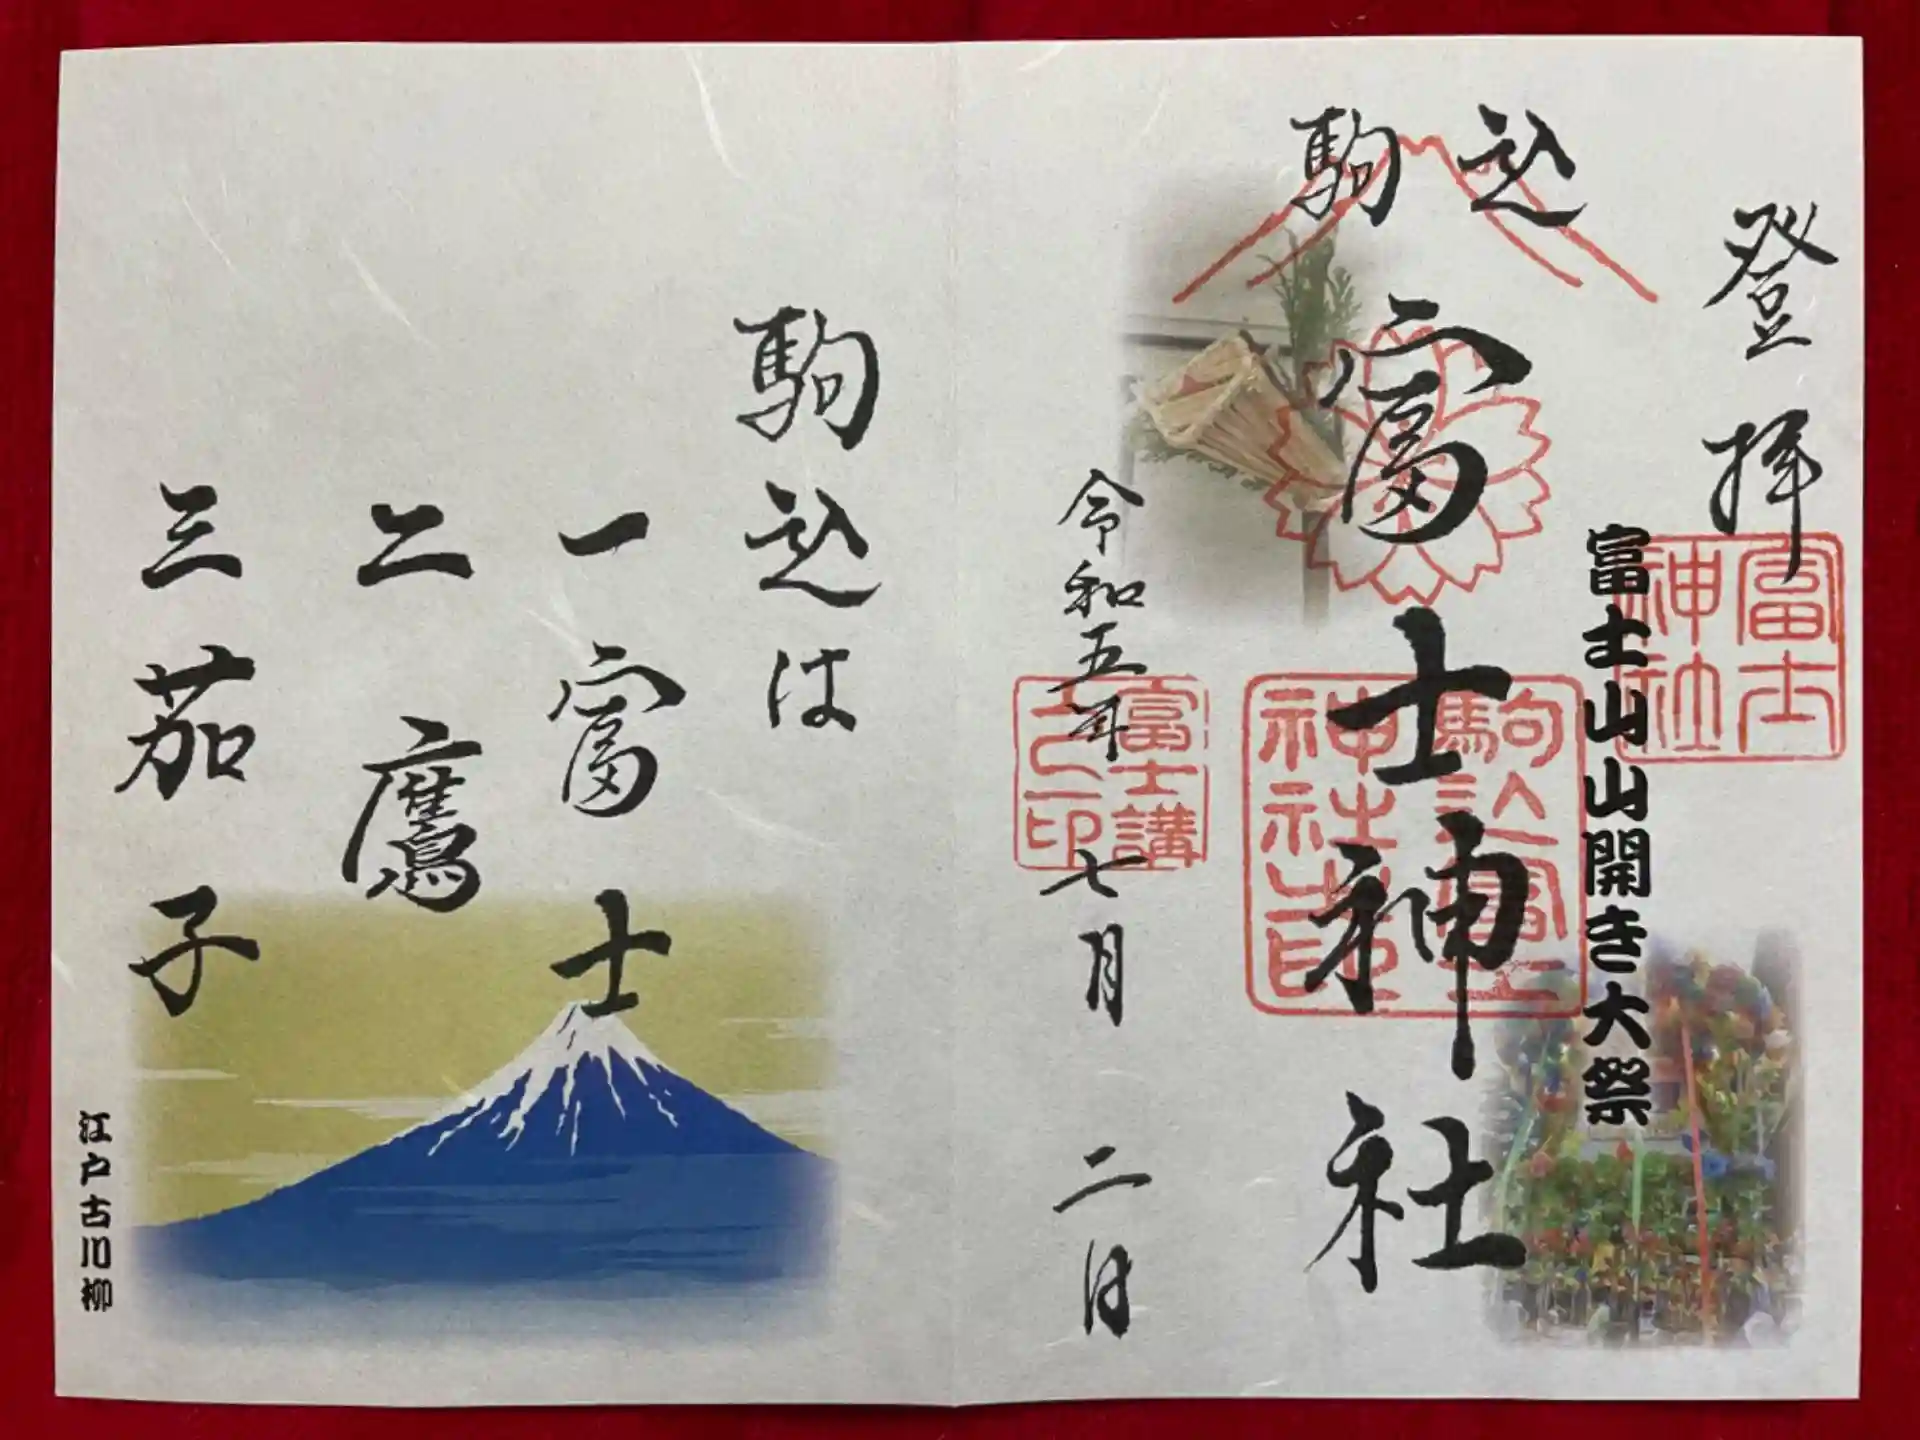 登拝
富士神社
富士山山開き大祭
駒込
富士神社
駒込富士神社之印
令和五年七月二日
富士講之印
駒込は
一富士
二鷹
三茄子
江戸古川柳